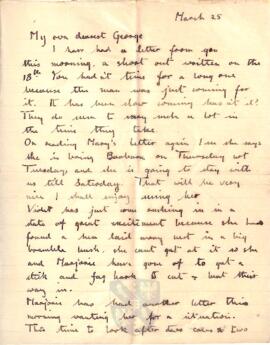 March 25
My own dearest George
I have had a letter from you
this morning, a short one written on the
18th. You hadn't time for a long one
because the man was just coming for
it. It has been slow coming hasn't it?
They do seem to vary such a lot in
the time they take.
On reading Mary's letter again I see she says
she is leaving on Thursday not
Tuesday, and she is going to stay with
us till Saturday. That will be very
nice I shall enjoy seeing her.
Violet has just come rushing in in a
state of great excitement because she has
found a hen laid away nest in a big
bramble bush, she can't get at it so she
and Marjorie have gone off to get a
stick and hook to cut & beat their
way in.
Marjorie has had another letter this
morning wanting her for a situation.
This time to look after two cows & two